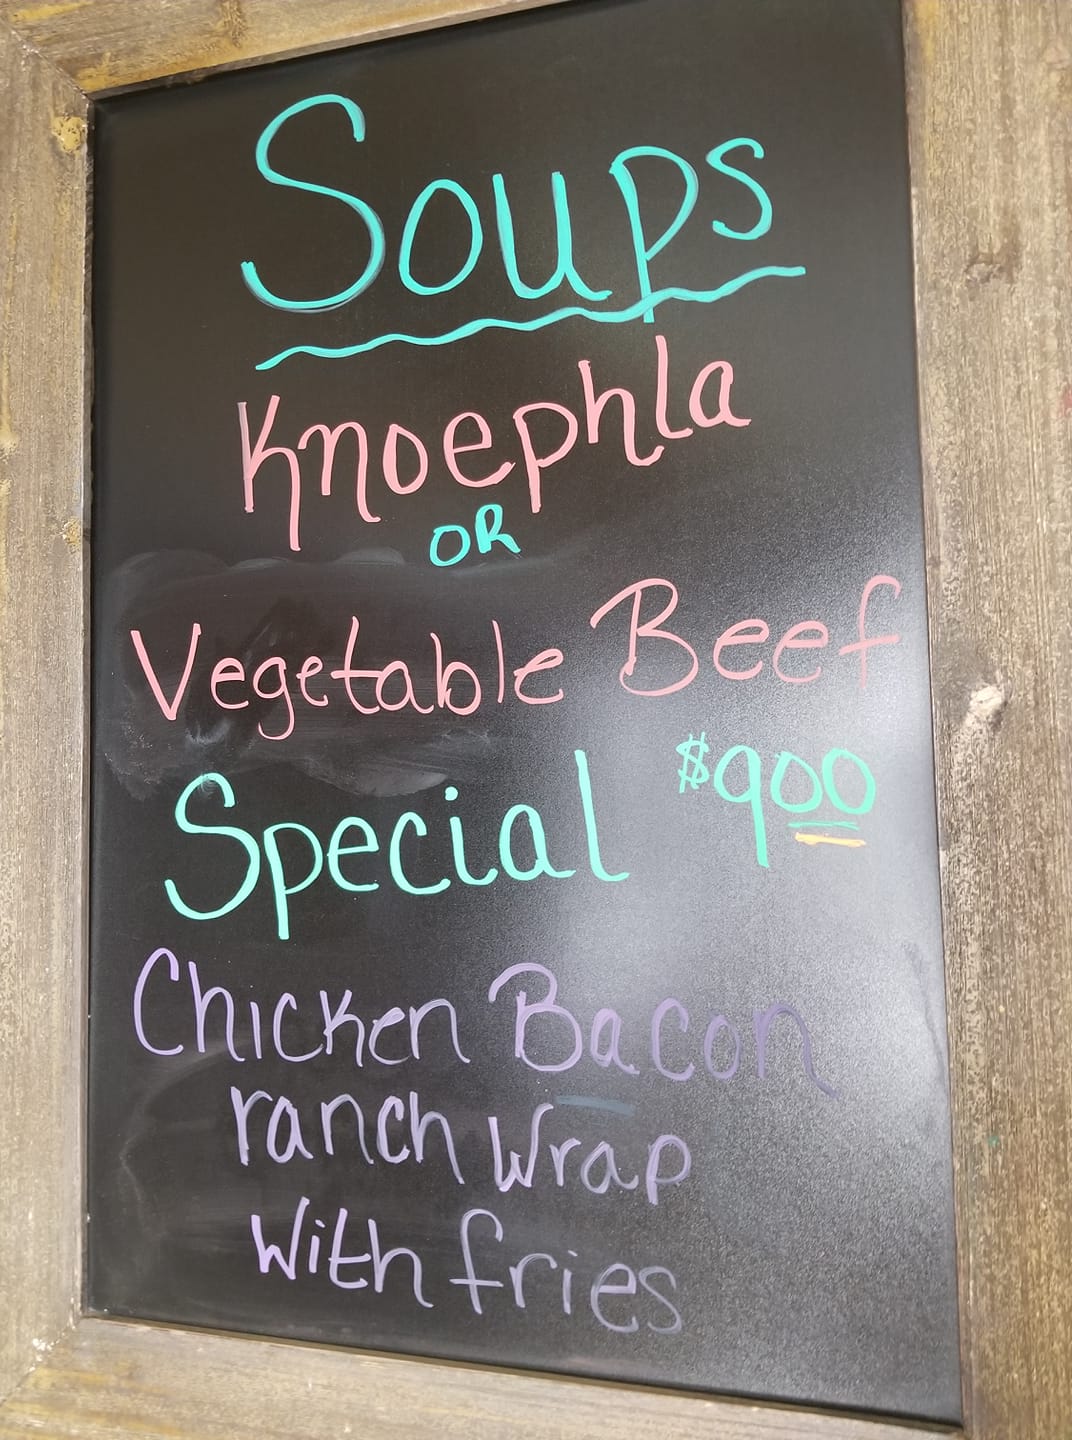 Soups
Knoephla
OR
Vegetable Beef
Special $900
Chicken Bacon
ranch Wrap
With fries